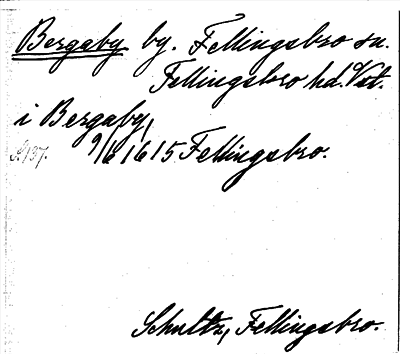 Bergaby by. Fellingsbro sn.
Fellingsbro hd. Vst.
i Bergaby,
S. 137. 9/6 1615 Fellingsbro.
Schultz, Fellingsbro.